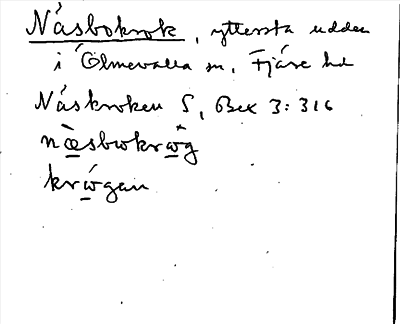 Näsbokrok, yttersta udden
i Ölmevalla sn, Fjäre hd
Näskroken S, Bex 3:316
næ̀sbωkrὼg
krὼgan